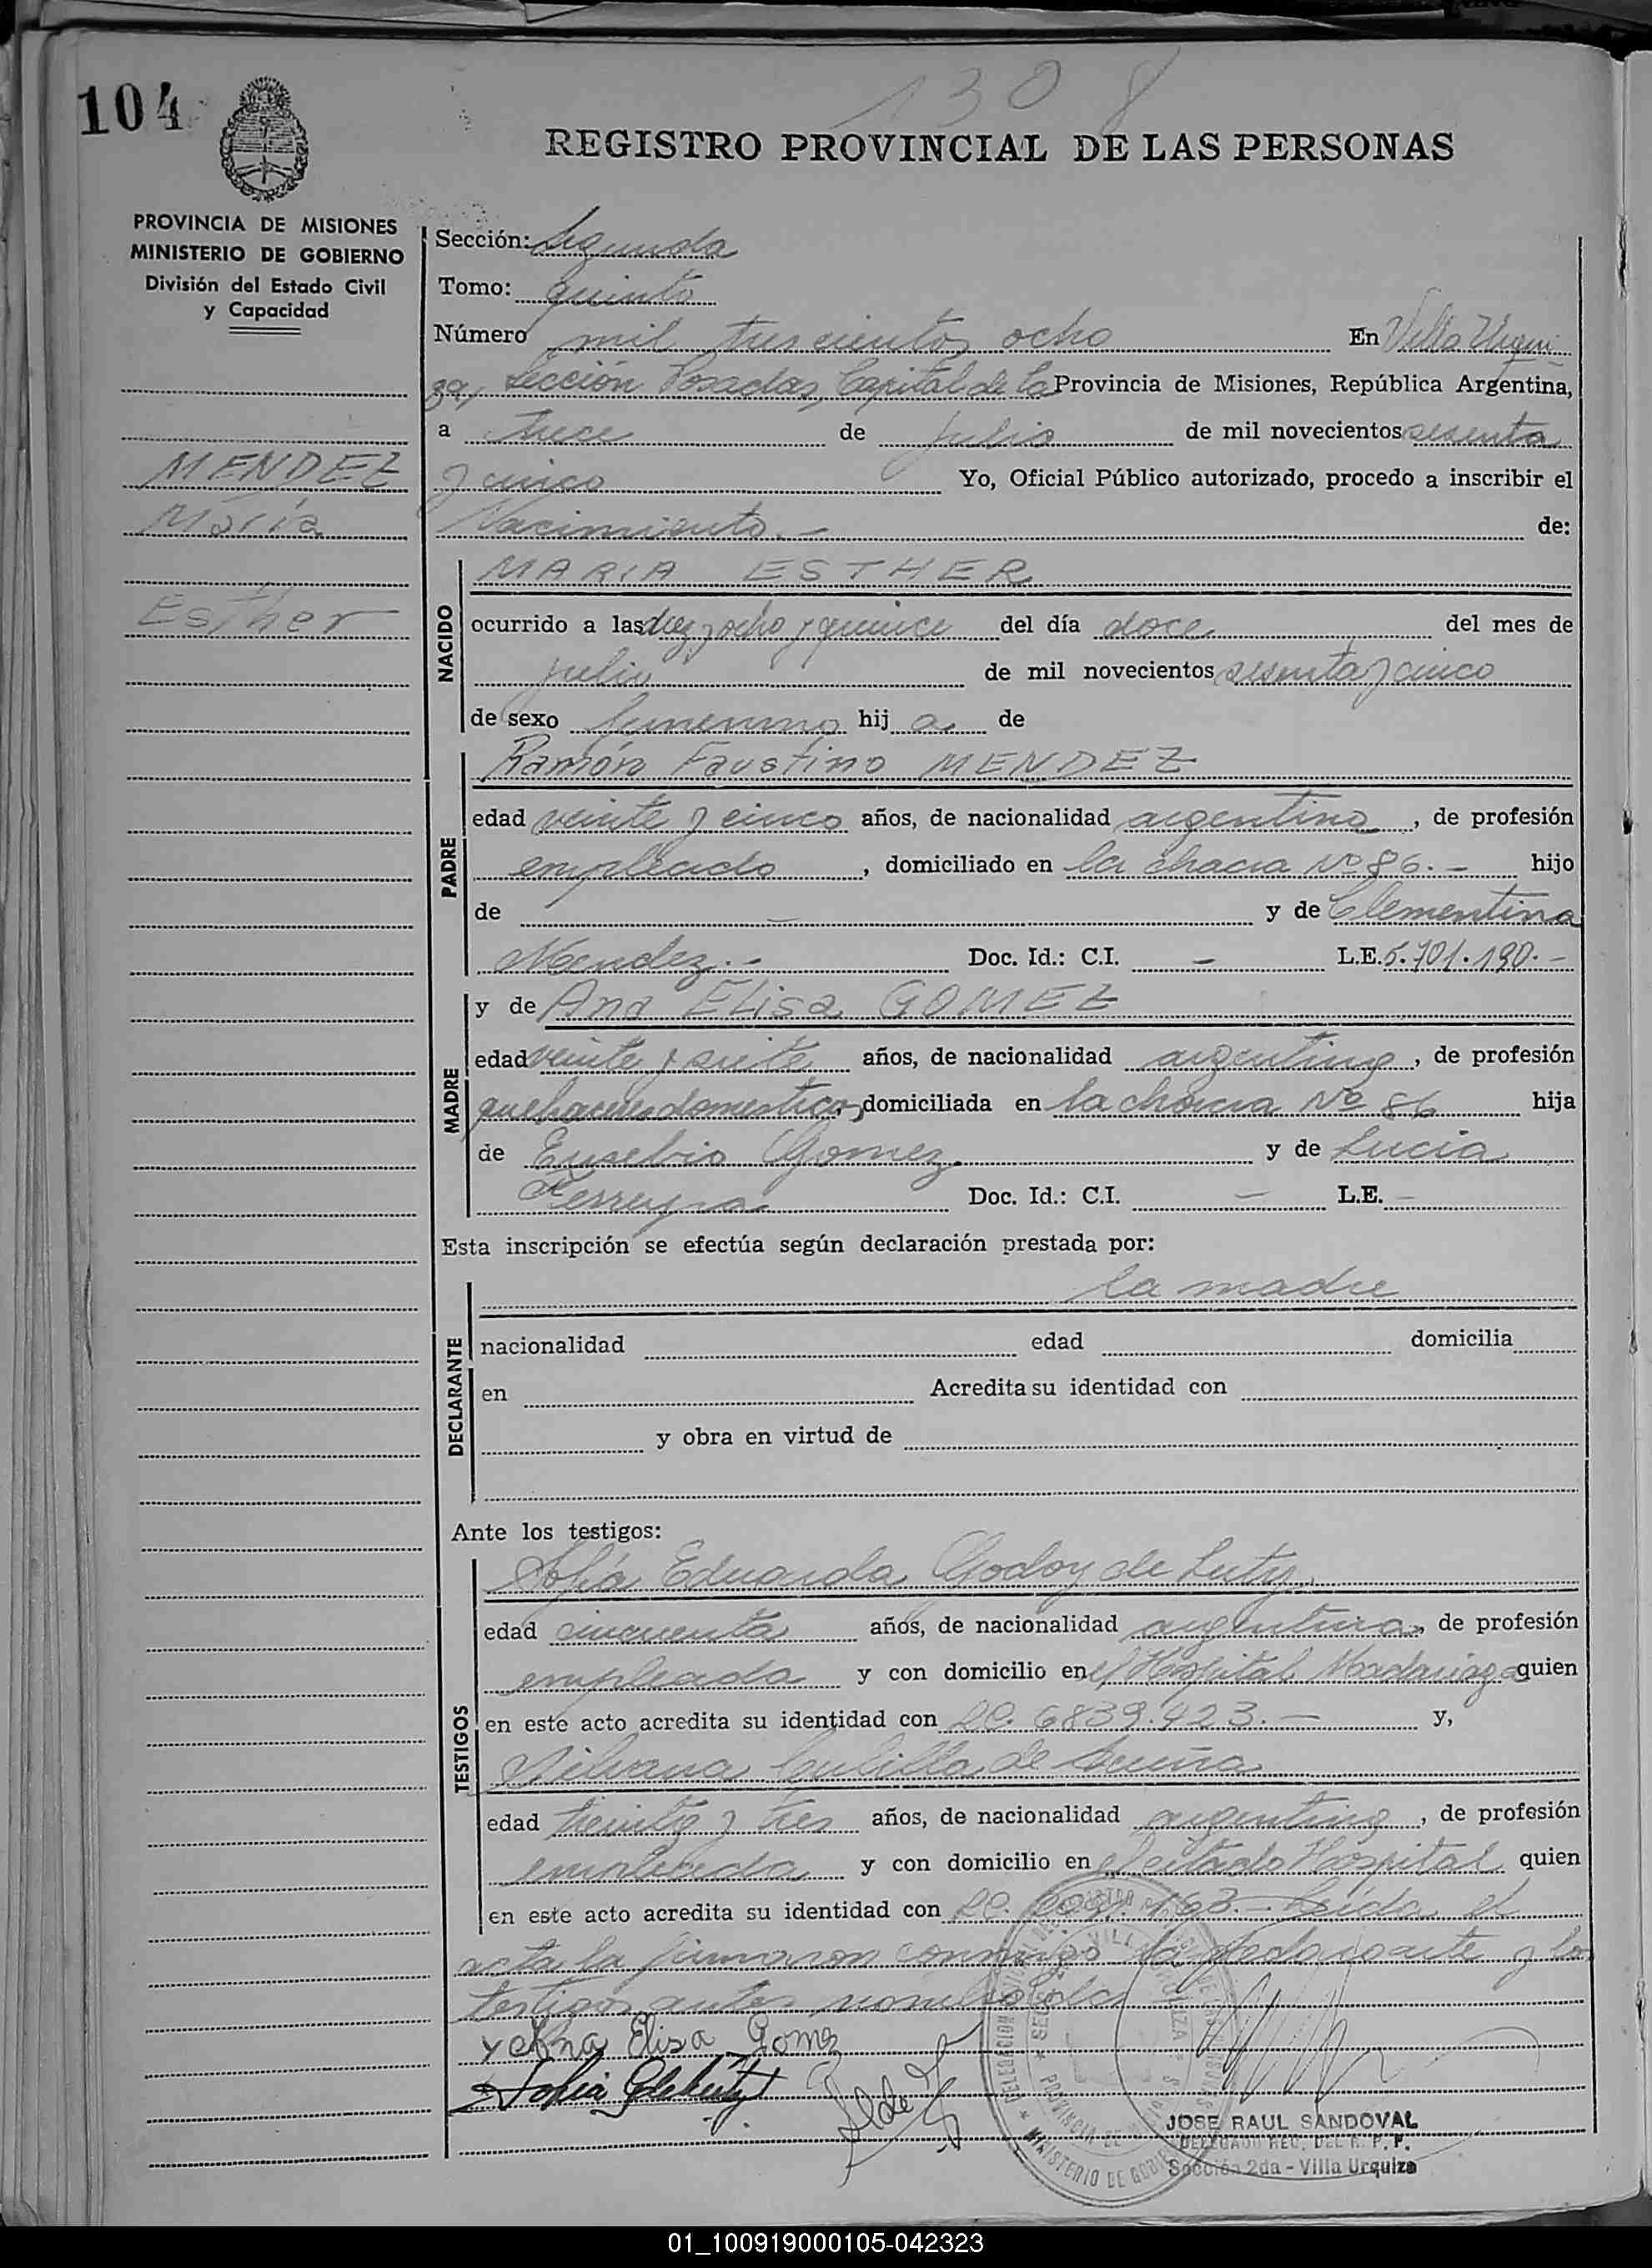 104
1308
REGISTRO PROVINCIAL DE LAS PERSONAS
PROVINCIA DE MISIONES
MINISTERIO DE GOBIERNO
División del Estado Civil
y Capacidad
MENDEZ
María
Esther
Sección: Segunda
Tomo: quinto
Número mil trescientos ocho En Villa Urqui
za, Sección Posadas, Capital de la Provincia de Misiones, República Argentina,
a trece de julio de mil novecientos sesenta
y cinco Yo, Oficial Público autorizado, procedo a inscribir el
Nacimiento.- de:
NACIDO
MARIA ESTHER
ocurrido a las diez y ocho y quince del día doce del mes de
julio de mil novecientos sesenta y cinco
de sexo femenino hij a de
PADRE
Ramón Faustino MENDEZ
edad veinte y cinco años, de nacionalidad argentina, de profesión
empleado, domiciliado en la chacra Nº 86.- hijo
de - y de Clementina
Mendez.- Doc. Id.: C.I. - L.E. 5.701.190.-
MADRE
y de Ana Elisa GOMEZ
edad veinte y siete años, de nacionalidad argentina, de profesión
quehaceres domesticos, domiciliada en la chacra Nº 86 hija
de Eusebio Gomez y de Lucia
Ferreyra Doc. Id.: C.I. - L.E. -
Esta inscripción se efectúa según declaración prestada por:
DECLARANTE
la madre
nacionalidad edad domicilia
en Acredita su identidad con
y obra en virtud de
Ante los testigos:
TESTIGOS
Sofía Eduarda Godoy de Lutz
edad cincuenta años, de nacionalidad argentina, de profesión
empleada y con domicilio en el Hospital Madariaga quien
en este acto acredita su identidad con LC. 6839.423.- y,
Silvana de Acuña
edad treinta y tres años, de nacionalidad argentina, de profesión
empleada y con domicilio en el citado Hospital quien
en este acto acredita su identidad con LC. 163.- Leída el
acta la firmaron conmigo la declarante y los
testigos antes nombrados
Ana Elisa Gomez
Sofia G de Lutz
JOSE RAUL SANDOVAL
DELEGADO REG. DEL R. P. P.
Sección 2da - Villa Urquiza
01_100919000105-042323